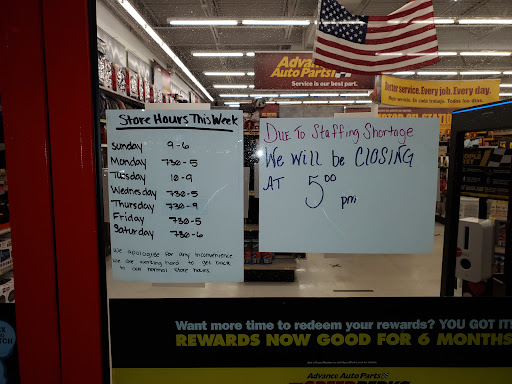 Advance
Auto Parts
Service is our best part.
Better service. Every job. Every day.
Store Hours This Week
Sunday 9-6
Monday 730-5
Tuesday 10-9
Wednesday 730-5
Thursday 730-9
Friday 730-5
Saturday 730-6
We apologize for any inconvenience
we are working hard to get back
to our normal store hours
Due to Staffing Shortage
We Will be CLOSING
AT 5⁰⁰ pm
Want more time to redeem your rewards? YOU GOT IT!
REWARDS NOW GOOD FOR 6 MONTHS
Advance Auto Parts
SPEEDPERKS